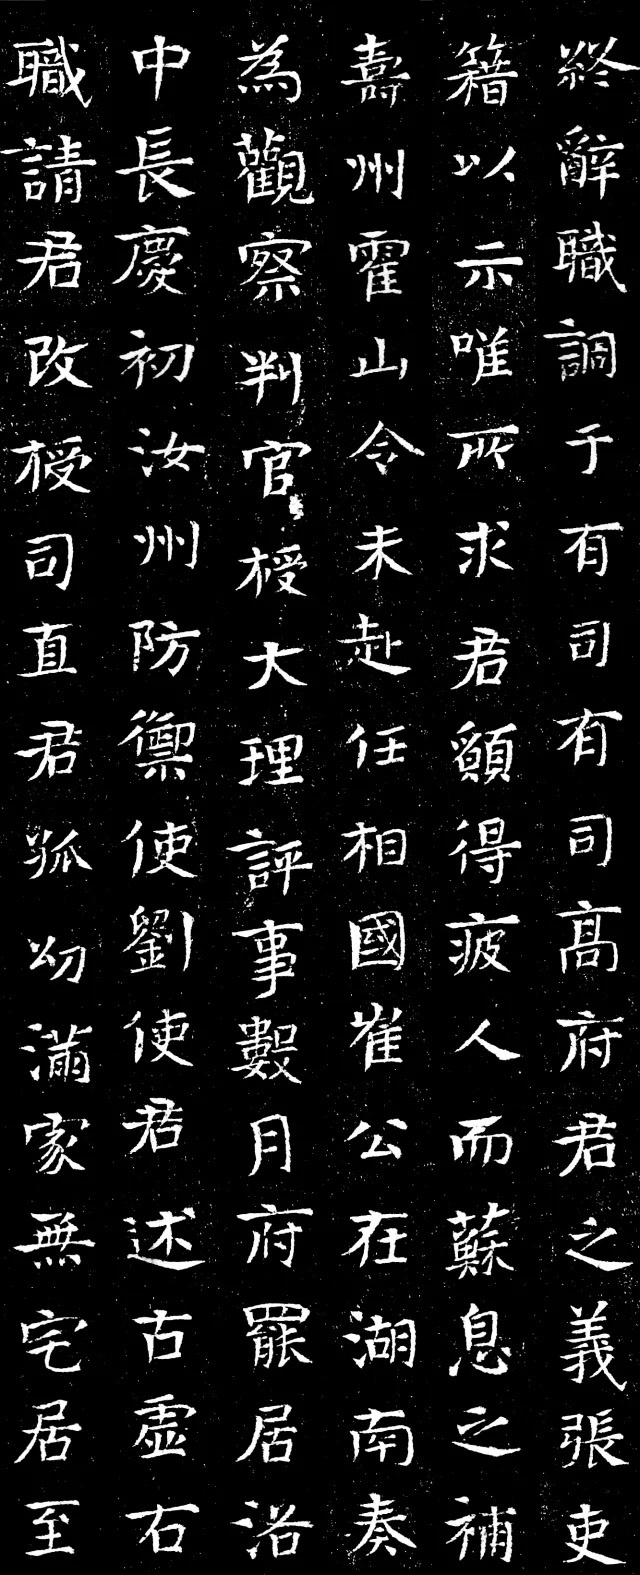 終辭職調于有司有司高府君之義張吏
籍以示唯所求君願得疲人而蘇息之補
壽州霍山令未赴任相國崔公在湖南奏
為觀察判官授大理評事數月府罷居洛
中長慶初汝州防禦使劉使君述古虛右
職請君改授司直君孤幼滿家無宅居至